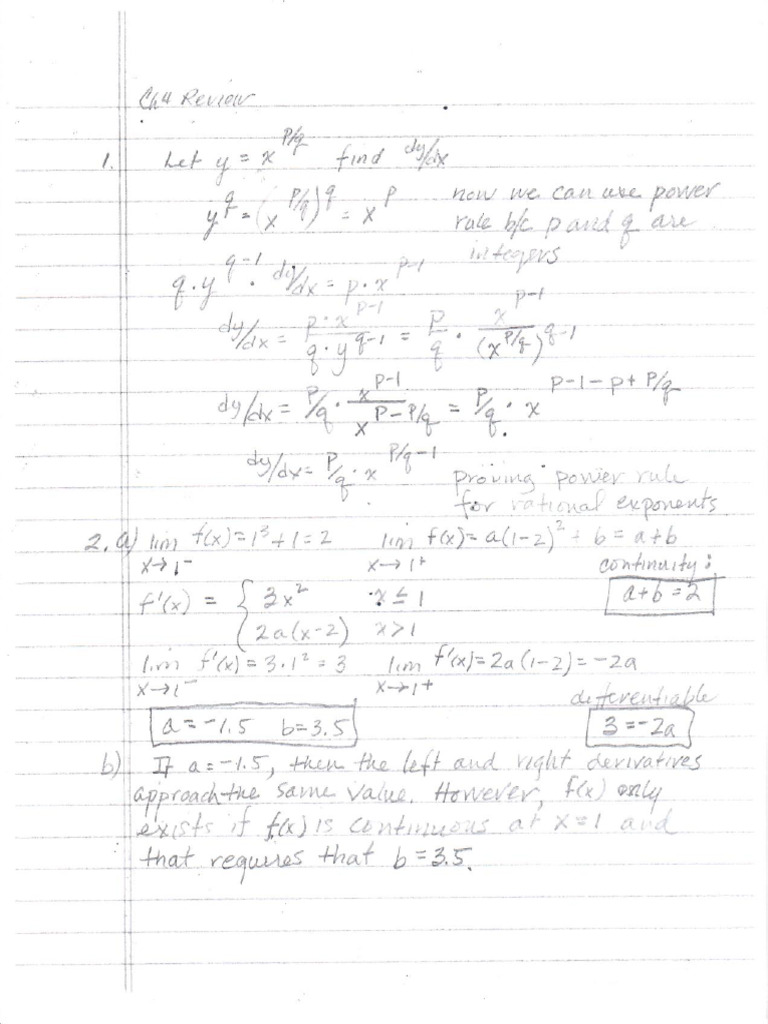 Ch 4 Review
1. Let y = x^(p/q) find dy/dx
y^q = (x^(p/q))^q = x^p now we can use power
rule b/c p and q are
integers
q · y^(q-1) · dy/dx = p · x^(p-1)
dy/dx = (p · x^(p-1))/(q · y^(q-1)) = p/q · x^(p-1)/(x^(p/q))^(q-1)
dy/dx = p/q · x^(p-1)/x^(p-p/q) = p/q · x^(p-1-p+p/q)
dy/dx = p/q · x^(p/q-1)
proving power rule
for rational exponents
2. a) lim x→1⁻ f(x) = 1³+1 = 2 lim x→1⁺ f(x) = a(1-2)² + b = a+b
continuity:
f'(x) = { 3x² x ≤ 1 a+b = 2
2a(x-2) x > 1
lim x→1⁻ f'(x) = 3·1² = 3 lim x→1⁺ f'(x) = 2a(1-2) = -2a
differentiable
a = -1.5 b = 3.5 3 = -2a
b) If a = -1.5, then the left and right derivatives
approach the same value. However, f(x) only
exists if f(x) is continuous at x = 1 and
that requires that b = 3.5.